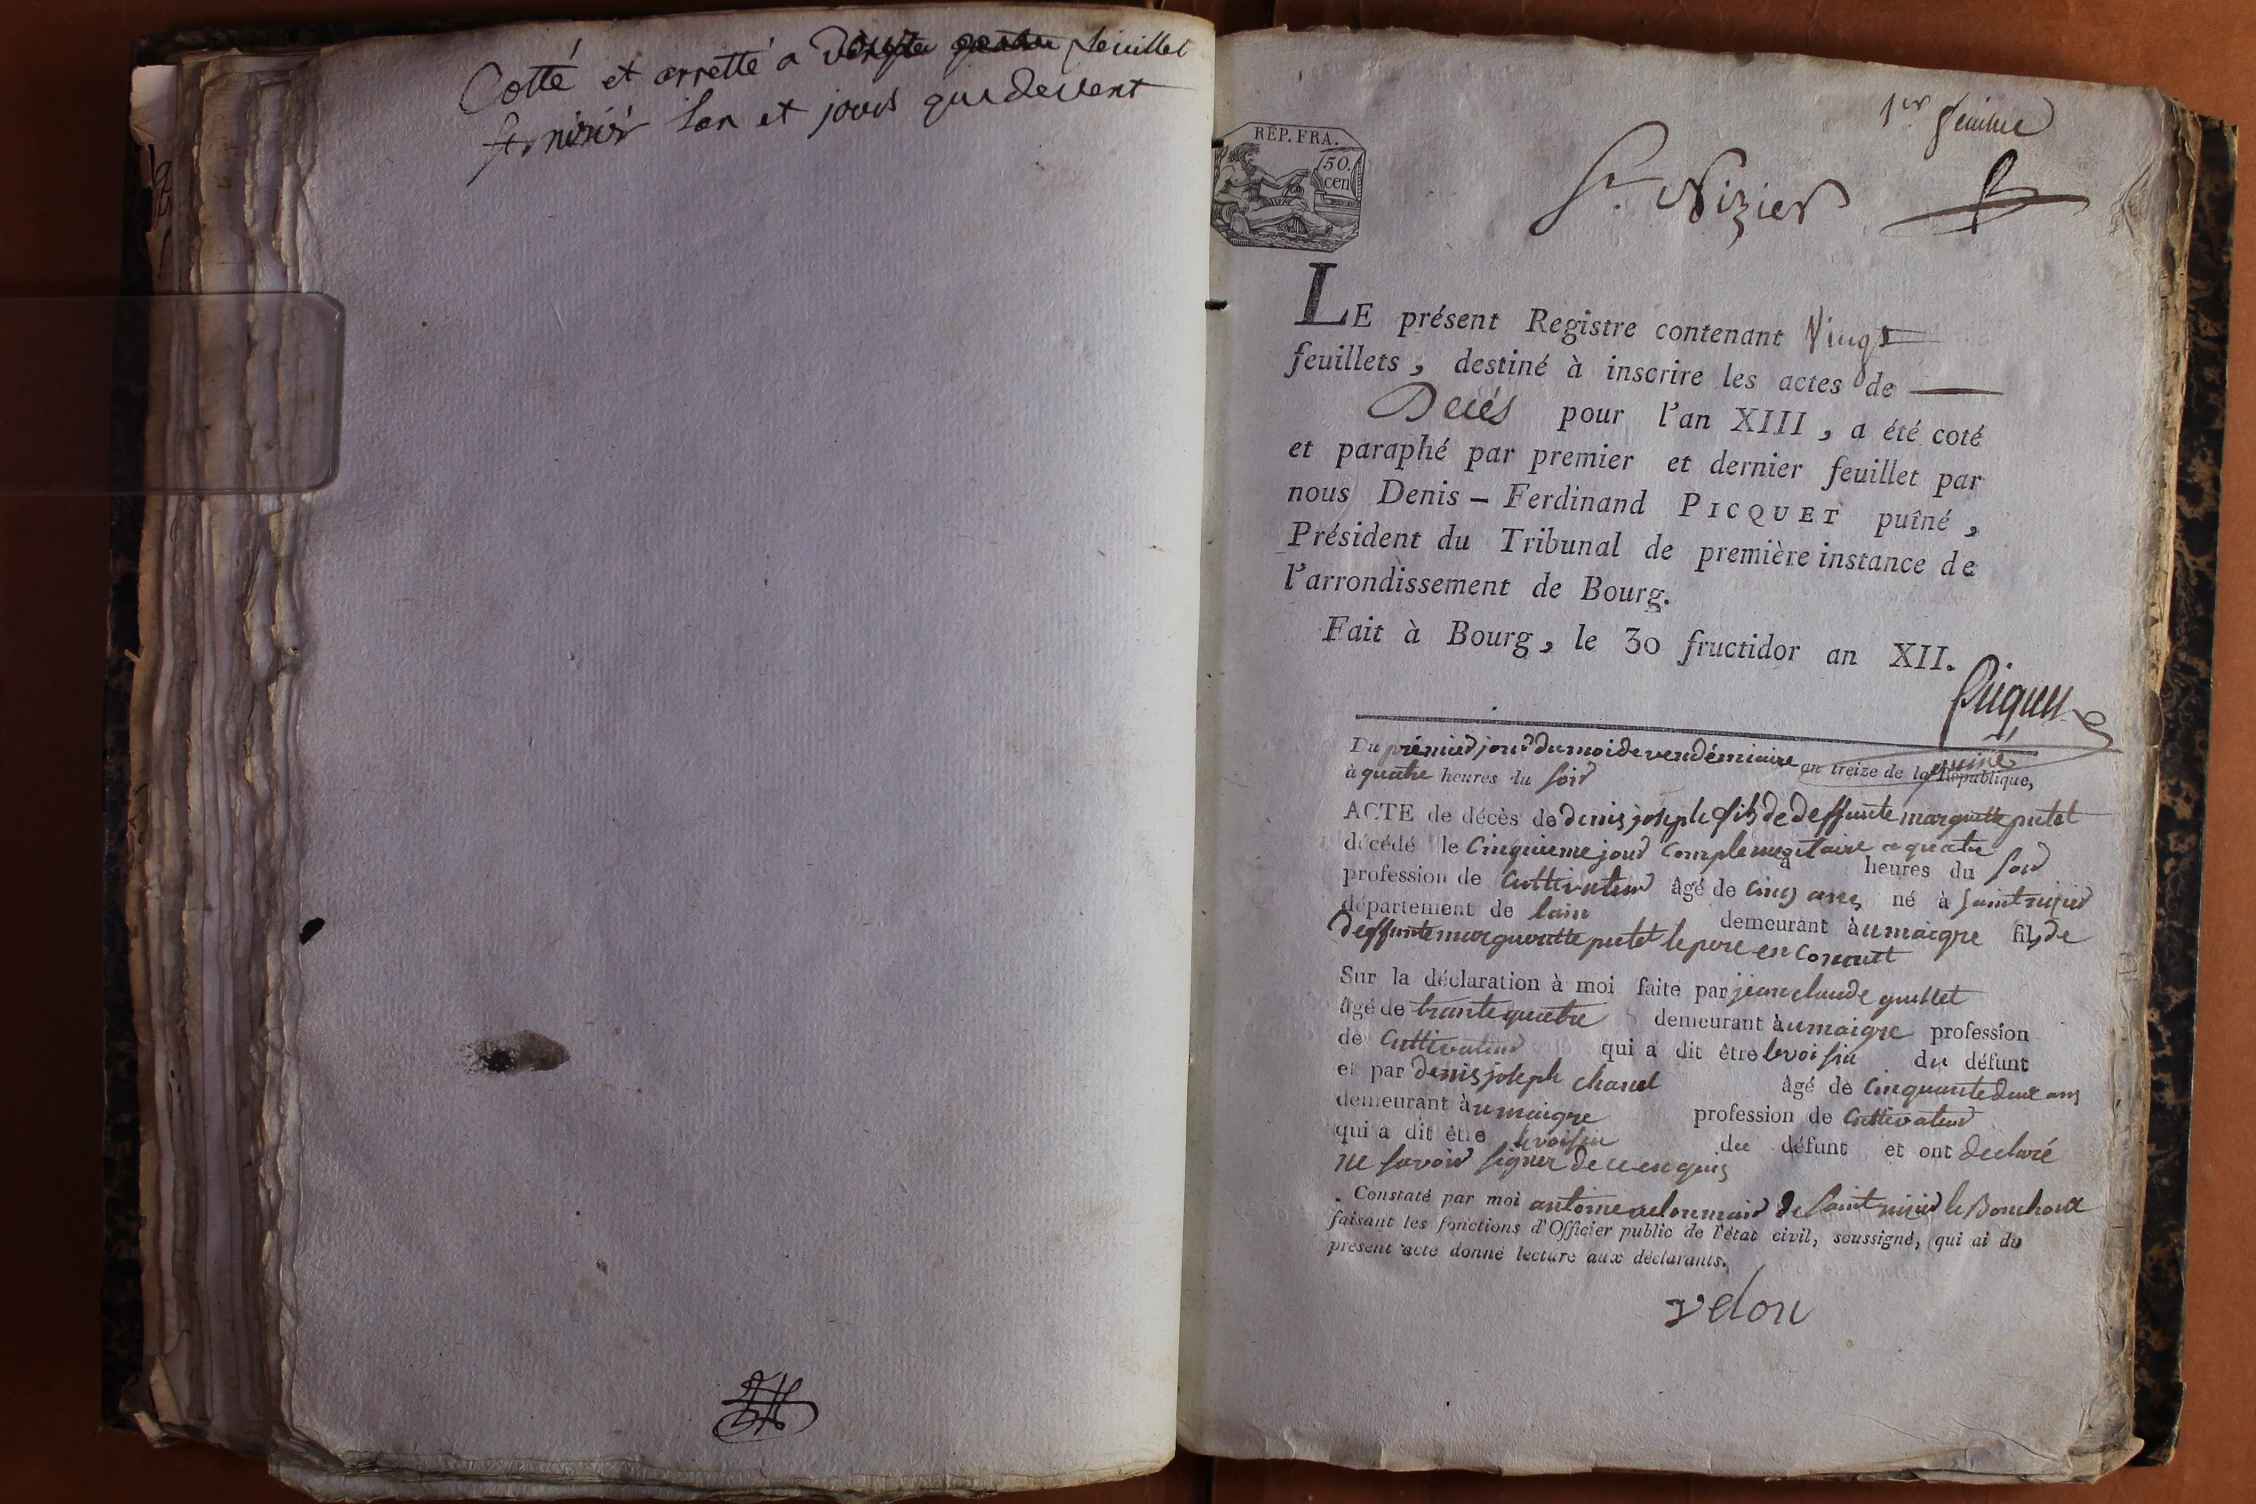 Cotté et arretté a feuillet
St nisier lan et jours que devent
1er feuillet
RÉP. FRA.
50.
cen
St. Nizier
LE présent Registre contenant Vingt
feuillets, destiné à inscrire les actes de
Décés pour l'an XIII, a été coté
et paraphé par premier et dernier feuillet par
nous Denis - Ferdinand PICQUET puîné,
Président du Tribunal de première instance de
l'arrondissement de Bourg.
Fait à Bourg, le 30 fructidor an XII.
Picquet
puiné
Du premier jour du moi de vendémiaire an treize de la République,
à quatre heures du soir
ACTE de décès de denis joseph fils de deffunte marguitte putet
décédé le Cinquieme jour complementaire a quatre heures du soir
profession de cultivateur âgé de cinq ans né à saint nizier
département de lain demeurant à umaigre fils de
deffunte margueritte putet le pere en
Sur la déclaration à moi faite par jean claude guillet
âgé de trante quatre demeurant à umaigre profession
de cultivateur qui a dit être levoisin du défunt
et par denis joseph chanel âgé de cinquante deux ans
demeurant à umaigre profession de cultivateur
qui a dit être levoisin du défunt et ont declaré
ne savoir signer de ce enquis
Constaté par moi antoine velon maire de saint nizier le Bouchoux
faisant les fonctions d'Officier public de l'état civil, soussigné, qui ai du
présent acte donné lecture aux déclarants.
velon